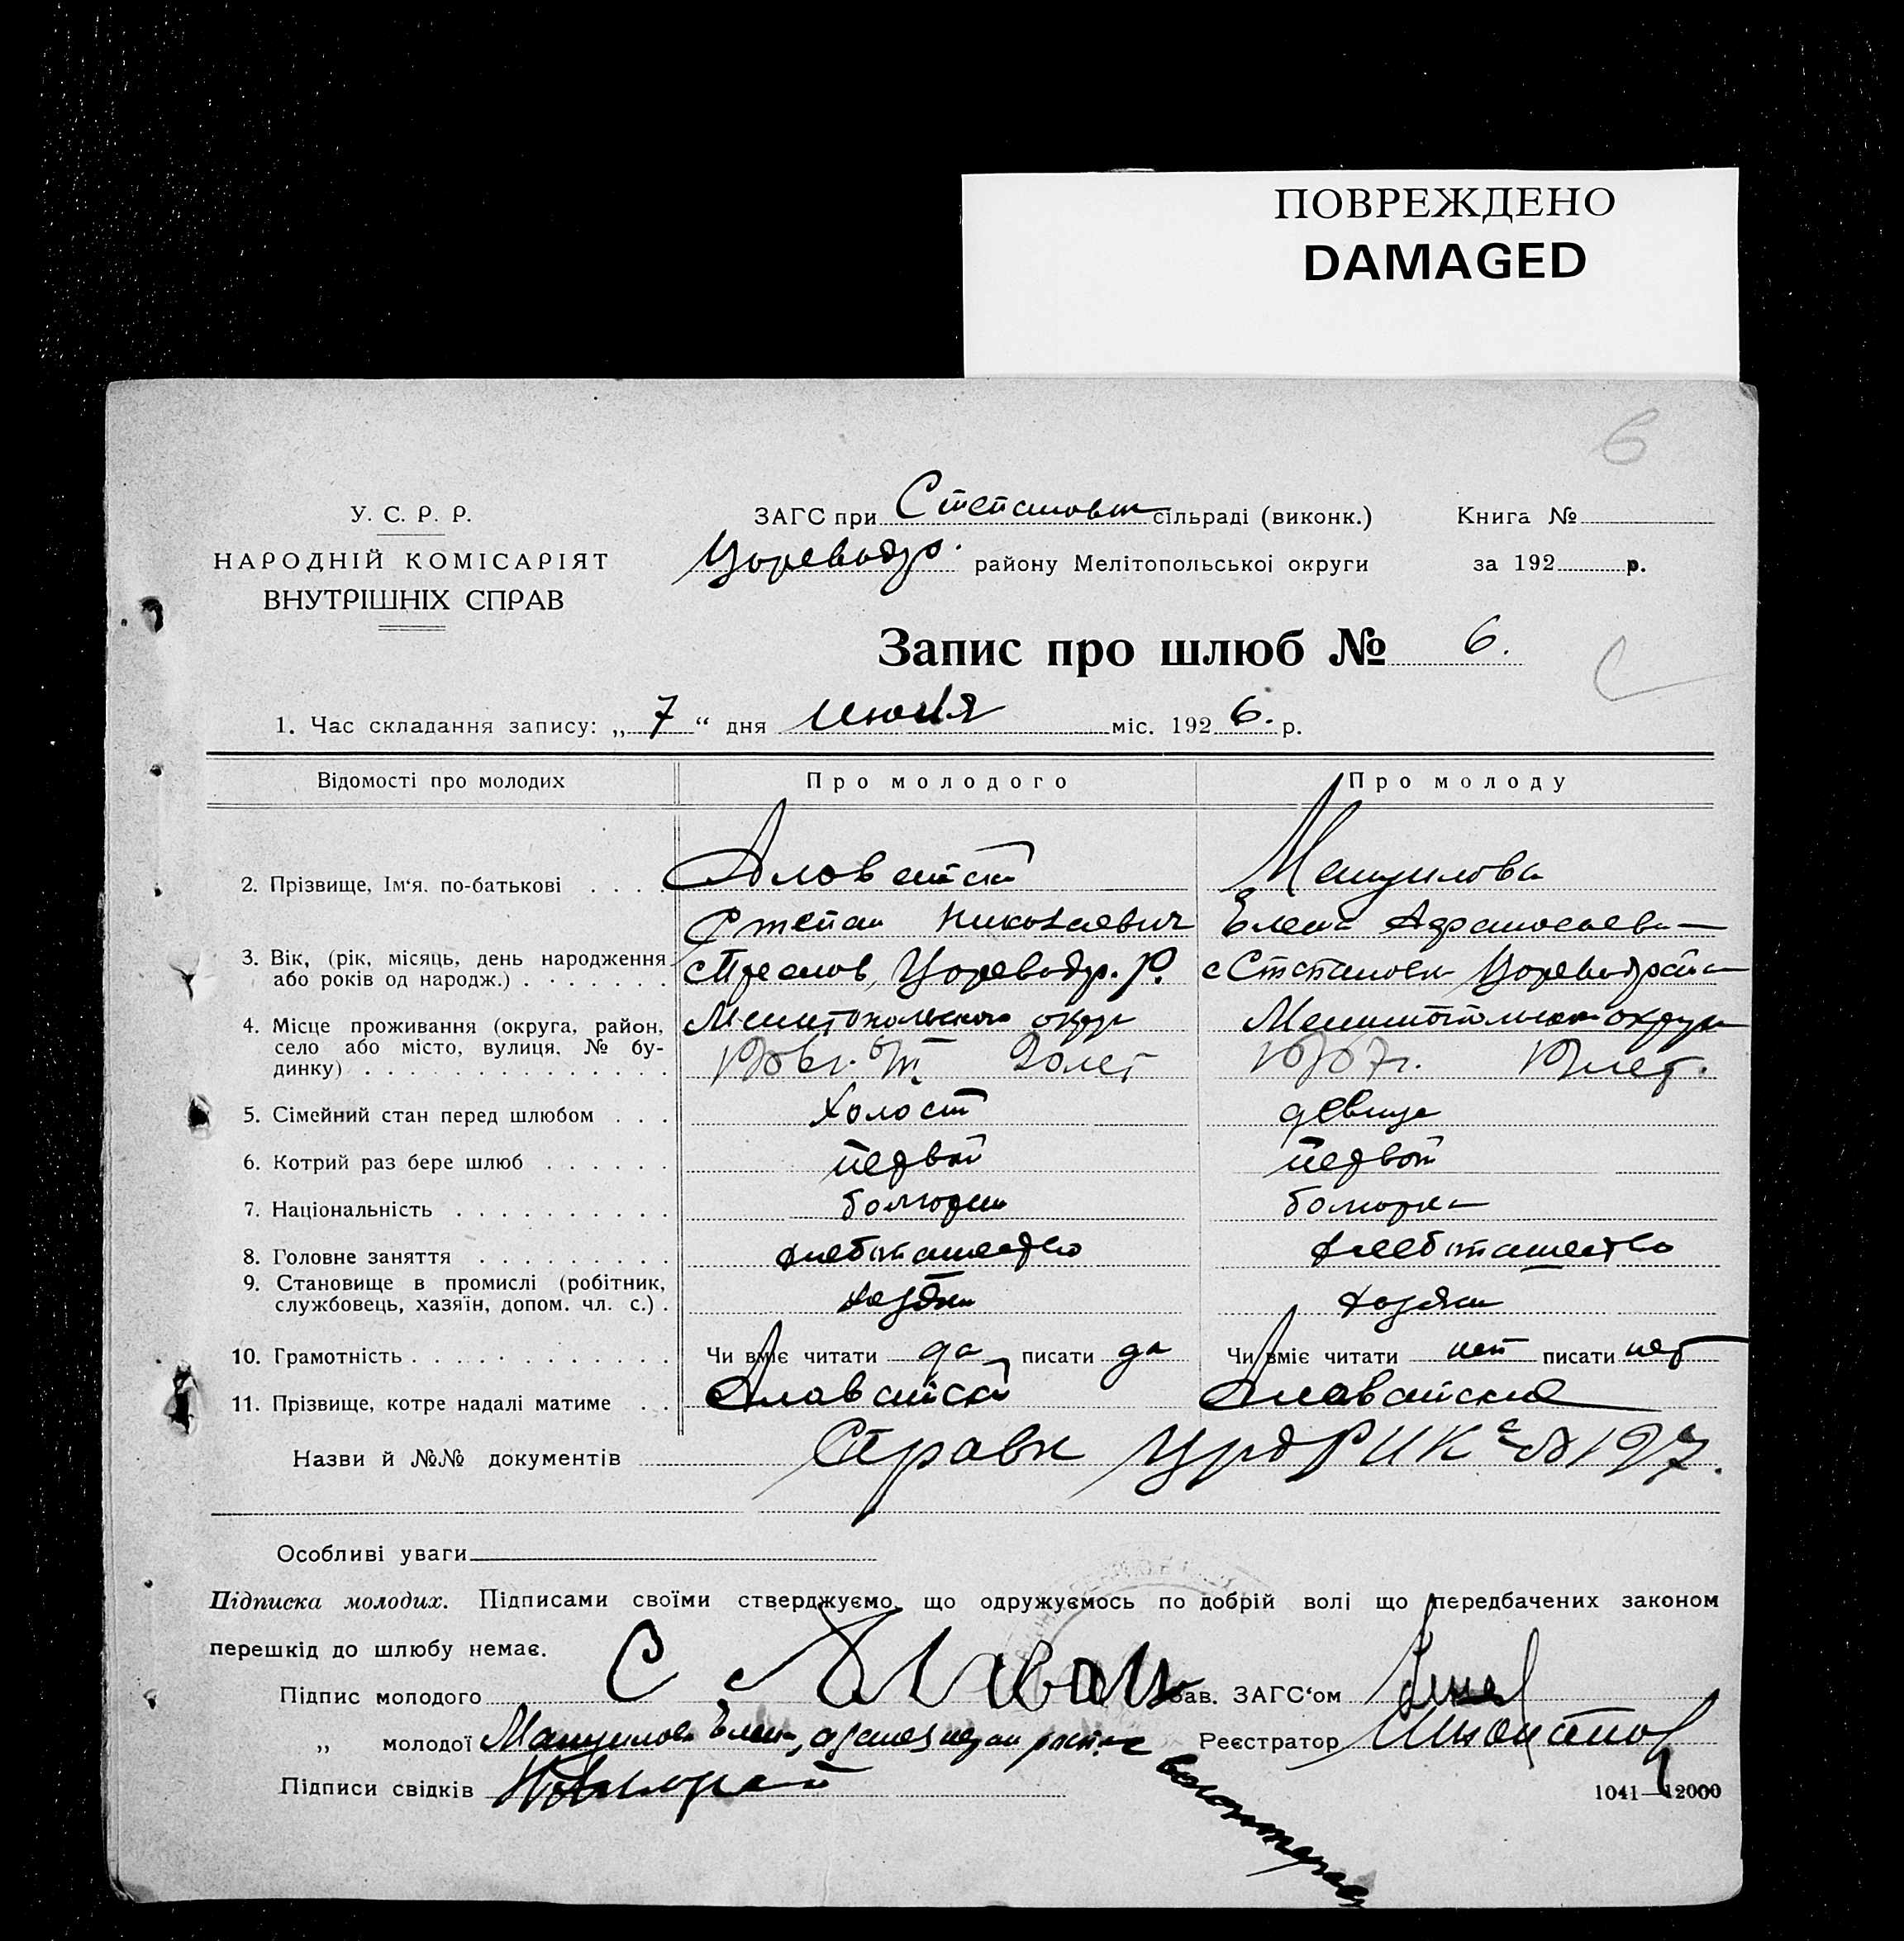 ПОВРЕЖДЕНО
DAMAGED
6
У. С. Р. Р.
НАРОДНІЙ КОМІСАРІЯТ
ВНУТРІШНІХ СПРАВ
ЗАГС при Степановк сільраді (виконк.)
Книга №
Цареводр. району Мелітопольської округи
за 192 р.
Запис про шлюб № 6.
1. Час складання запису: „ 7 “ дня июня міс. 192 6. р.
Відомості про молодих
Про молодого
Про молоду
2. Прізвище, Ім‘я. по-батькові . . . .
Мануилова
Степан Николаевич
Елена
3. Вік, (рік, місяць, день народження
або років од народж.) . . . . . . .
с Цареводр. Р.
с Степановка
4. Місце проживання (округа, район,
село або місто, вулиця, № бу-
динку) . . . . . . . . . . . . . .
Мелитопольского округа
Мелитопольского округа
1906 г. 20 лет
1907 г. 19 лет.
5. Сімейний стан перед шлюбом . . .
холост
девица
6. Котрий раз бере шлюб . . . . . .
первый
первый
7. Національність . . . . . . . . . .
болгарин
болгарка
8. Головне заняття . . . . . . . . .
хлебопашество
хлебопашество
9. Становище в промислі (робітник,
службовець, хазяїн, допом. чл. с.) .
хозяин
10. Грамотність . . . . . . . . . . . .
Чи вміє читати да писати да
Чи вміє читати нет писати нет
11. Прізвище, котре надалі матиме . .
Назви й №№ документів
Справк
Особливі уваги
Підписка молодих. Підписами своїми стверджуємо, що одружуємось по добрій волі що передбачених законом
перешкід до шлюбу немає.
Підпис молодого
Зав. ЗАГС‘ом
„ молодої Мануилова Елена
Реєстратор
Підписи свідків
1041—12000